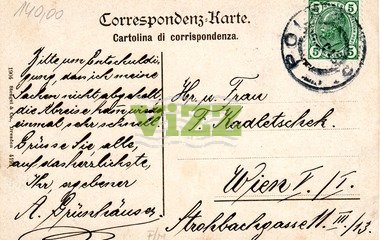 140,00
Correspondenz-Karte.
Cartolina di corrispondenza.
5 5
5 5
POLA
Bitte um Entschuldi-
gung, dass ich meine
Sachen nicht abgeholt,
die Abreise kam uns
einmal sehr schnell.
Grüsse Sie alle,
auf das herzlichste,
Ihr ergebener
A. Grünhäuser
Hr. u. Frau
F. Kadletschek.
Wien V./1.
Strohbachgasse 11. III./13.
1906
Stengel & Co., Dresden
viza